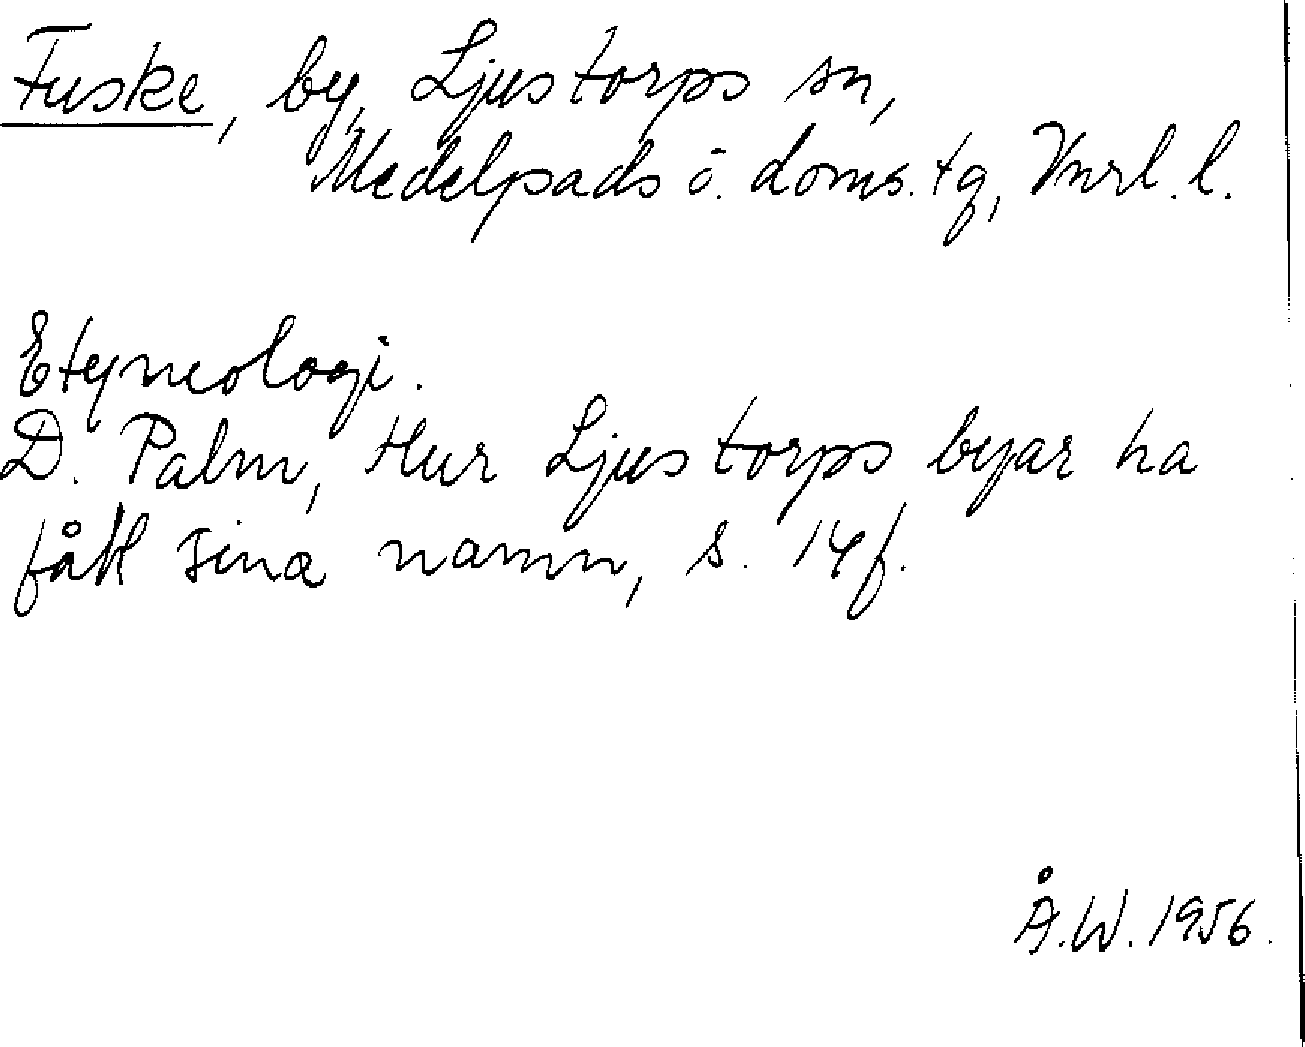 Fuske, by, Ljustorps sn,
Medelpads ö. doms. tg, Vnrl. l.
Etymologi.
D. Palm, Hur Ljustorps byar ha
fått sina namn, s. 14f.
Å.W. 1956.